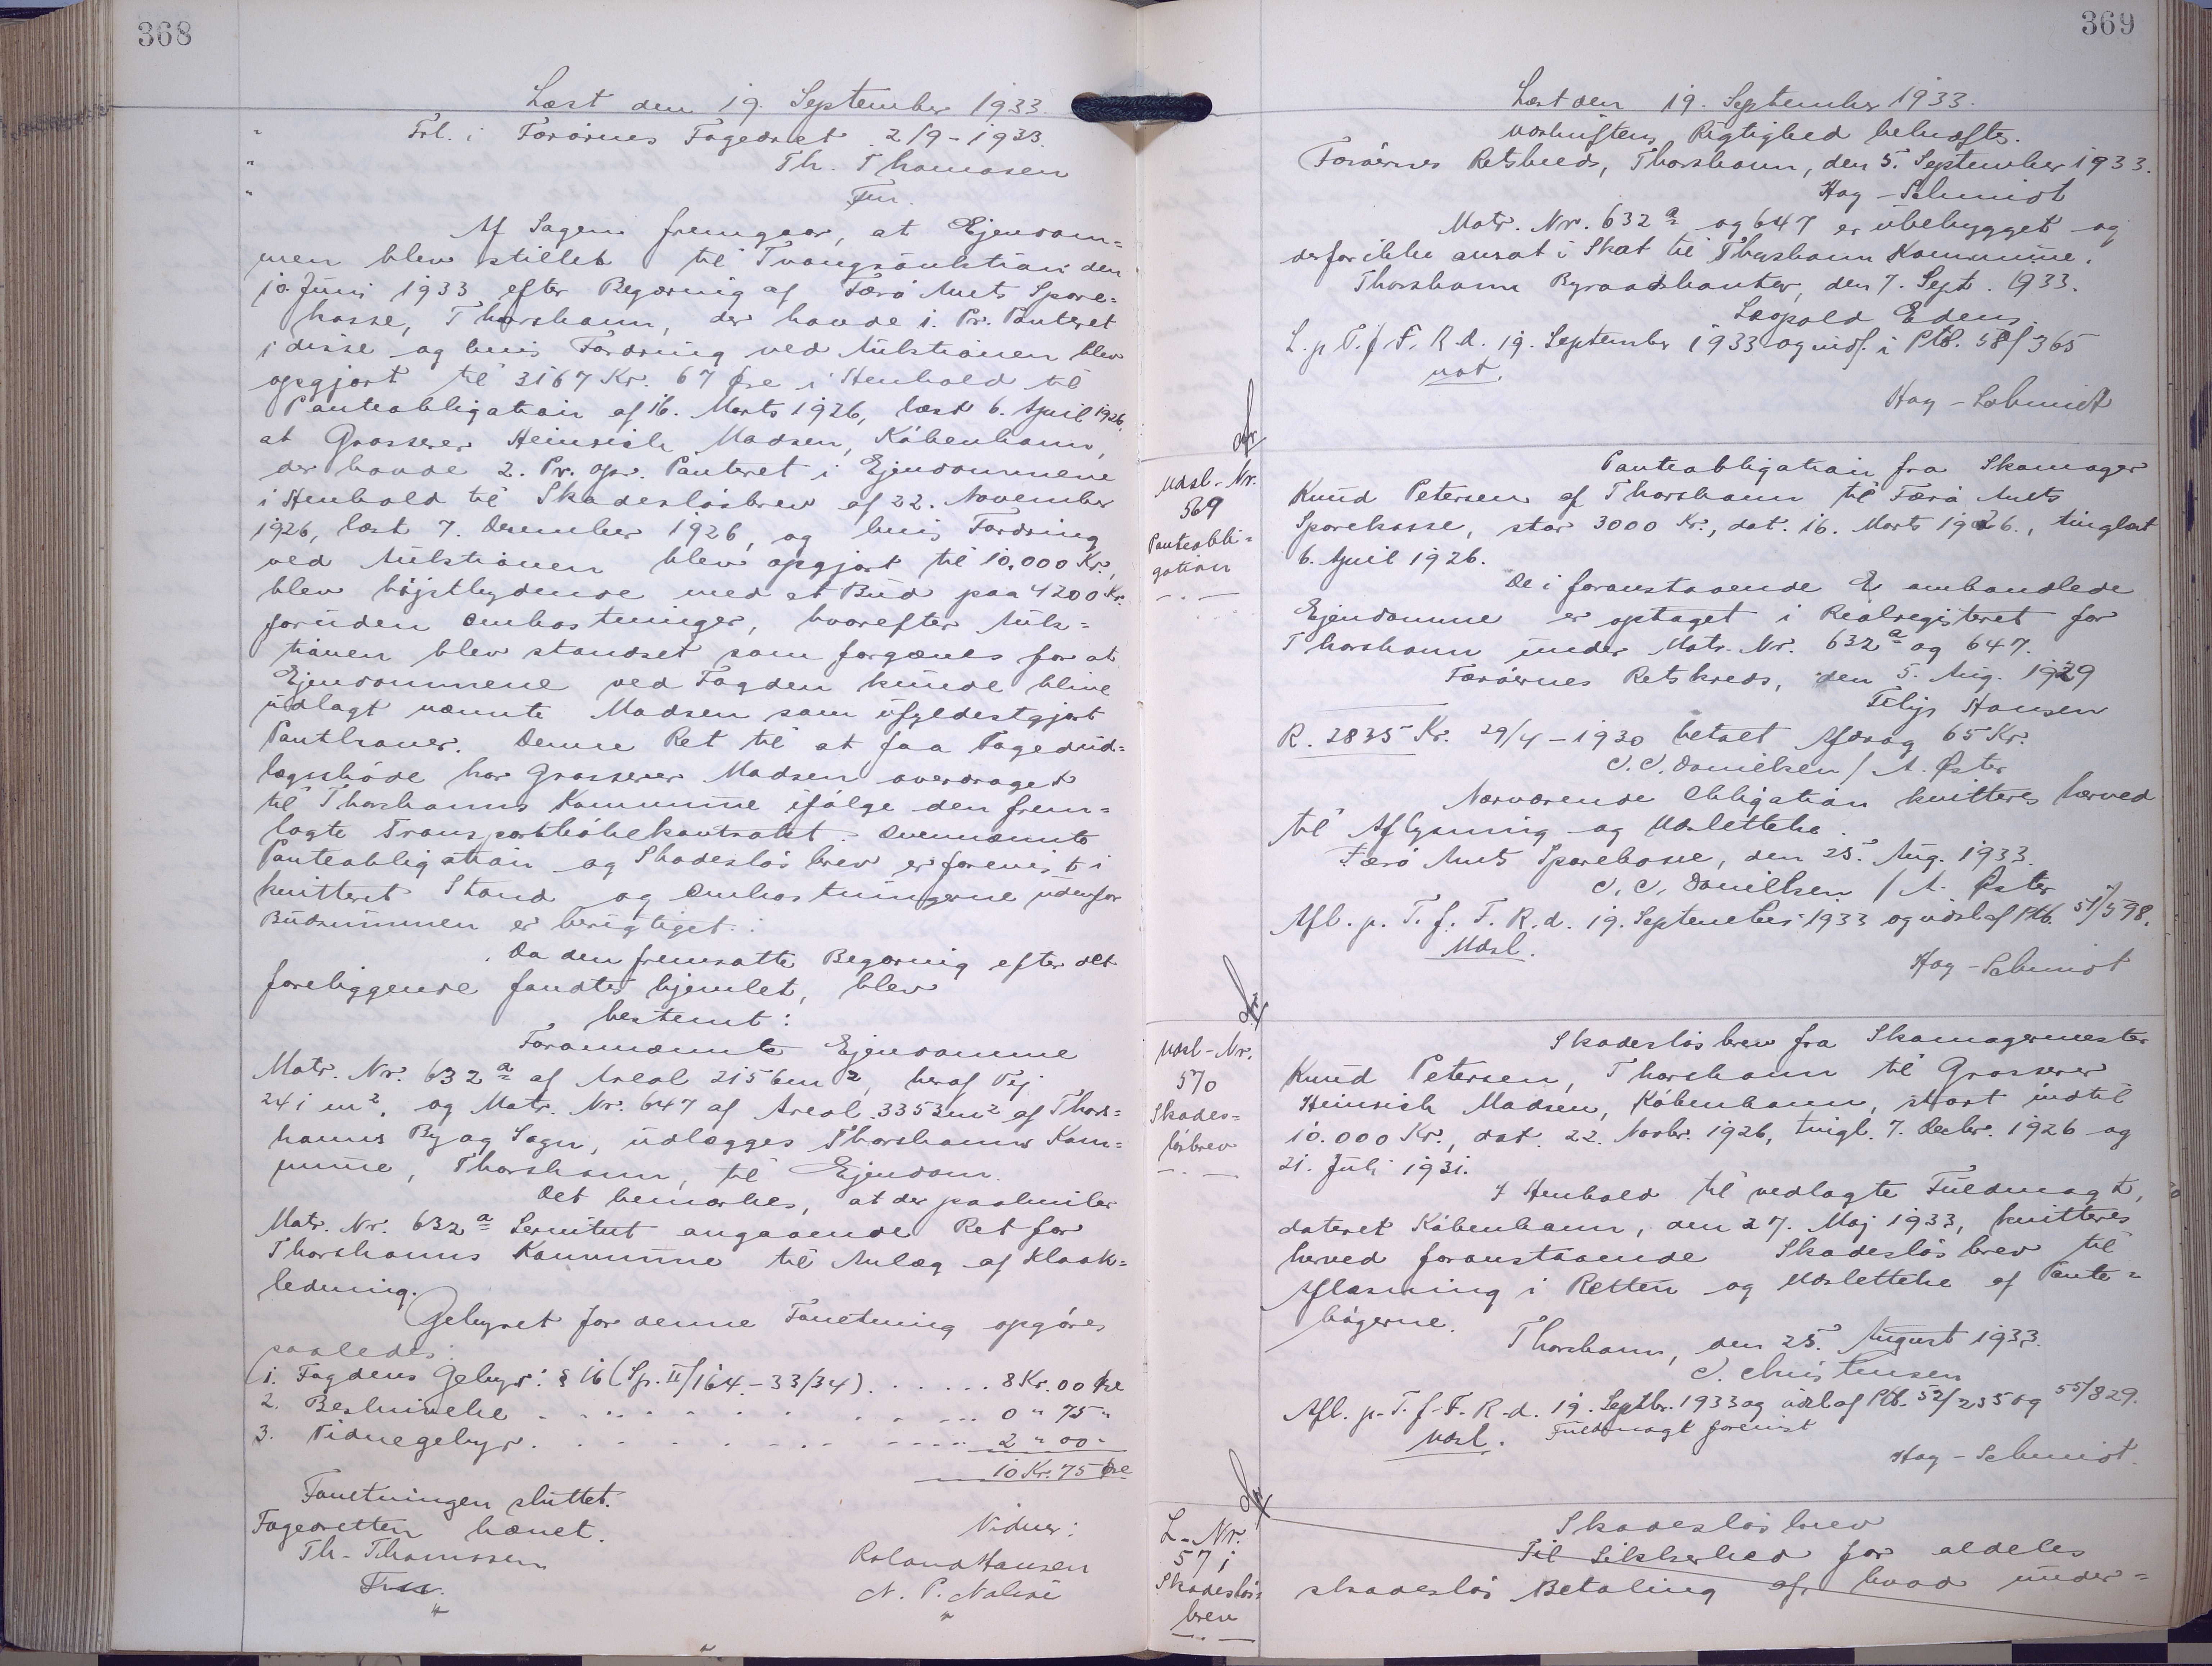 368
Læst den 19. September 1933.
" Frl. i Færøernes Fogedret 2/9-1933.
" Th. Thomassen
" Fm.
Af Sagen fremgaar, at Ejendom=
men blev stillet til Tvangsauktion den
10. Juni 1933 efter Begæring af Færø Amts Spare=
kasse, Thorshavn, der havde 1. Pr. Panteret
i disse og hvis Fordring ved Auktionen blev
opgjort til 3167 Kr. 67 Øre i Henhold til
Panteobligation af 16. Marts 1926, læst 6. April 1926,
at Grosserer Heinrich Madsen, København,
der havde 2. Pr. opr. Panteret i Ejendommene
i Henhold til Skadesløsbrev af 22. November
1926, læst 7. December 1926, og hvis Fordring
ved Auktionen blev opgjort til 10.000 Kr.,
blev højstbydende med et Bud paa 4200 Kr.
foruden Omkostninger, hvorefter Auk=
tionen blev standset som forgæves for at
Ejendommene ved Fogden kunde blive
udlagt nævnte Madsen som ufyldestgjort
Panthaver. Denne Ret til at faa Fogedud=
lægsskøde har Grosserer Madsen overdraget
til Thorshavns Kommune ifølge den frem=
lagte Transportkøbekontrakt. Ovennævnte
Panteobligation og Skadesløsbrev er forevist i
kvitteret Stand og Omkostningerne udenfor
Budsummen er berigtiget.
Da den fremsatte Begæring efter det
foreliggende fandtes hjemlet, blev
bestemt:
Forannævnte Ejendomme
Matr. Nr. 632 a af Areal 2156 m2, heraf Vej
241 m2, og Matr. Nr. 647 af Areal 3353 m2 af Thors=
havns By og Sogn, udlægges Thorshavns Kom=
mune, Thorshavn, til Ejendom.
Det bemærkes, at der paahviler
Matr. Nr. 632 a Servitut angaaende Ret for
Thorshavns Kommune til Anlæg af Kloak=
ledning.
Gebyret for denne Forretning opgøres
saaledes:
1. Fogdens Gebyr: § 16 (Sp. II/164 - 33/34) . . . . . 8 Kr. 00 Øre
2. Beskrivelse . . . . . . . . 0 " 75 "
3. Vidnegebyr . . . . . . . . 2 " 00 "
10 Kr. 75 Øre
Forretningen sluttet.
Fogedretten hævet.
Th. Thomssen
Fm.
Vidner:
Roland Hansen
N. P. Nolsøe
369
Læst den 19. September 1933.
Afskriftens Rigtighed bekræftes.
Færøernes Retskreds, Thorshavn, den 5. September 1933.
Høg-Schmidt
Matr. Nr. 632 a og 647 er ubebygget og
derfor ikke ansat i Skat til Thorshavn Kommune.
Thorshavn Byraadskontor, den 7. Sept. 1933.
Leopold Edens.
L. p. T. f. F. R. d. 19. September 1933 og indf. i Ptb. 58/365
not.
Høg-Schmidt
Udsl.-Nr.
569
Panteobli=
gation
Panteobligation fra Skomager
Knud Petersen af Thorshavn til Færø Amts
Sparekasse, stor 3000 Kr., dat. 16. Marts 1926., tinglæst
6. April 1926.
De i foranstaaende E omhandlede
Ejendomme er optaget i Realregisteret for
Thorshavn under Matr. Nr. 632 a og 647.
Færøernes Retskreds, den 5. Aug. 1929
Filip Hansen
R. 2835 Kr. 29/4-1930 betalt Afdrag 65 Kr.
C. C. Danielsen / A. Øster
Nærværende Obligation kvitteres herved
til Aflysning og Udslettelse.
Færø Amts Sparekasse, den 25. Aug. 1933.
C. C. Danielsen / A. Øster
Afl. p. T. f. F. R. d. 19. September 1933 og udsl. af Ptb. 51/598.
Udsl.
Høg-Schmidt
Udsl.-Nr.
570
Skades=
løsbrev
Skadesløsbrev fra Skomagermester
Knud Petersen, Thorshavn til Grosserer
Heinrich Madsen, København, stort indtil
10.000 Kr., dat. 22. Novbr. 1926, tingl. 7. Decbr. 1926 og
21. Juli 1931.
I Henhold til vedlagte Fuldmagt,
dateret København, den 27. Maj 1933, kvitteres
herved foranstaaende Skadesløsbrev til
Aflæsning i Retten og Udslettelse af Pante=
bøgerne.
Thorshavn, den 25. August 1933.
C. Christensen
Afl. p. T. f. F. R. d. 19. Septbr. 1933 og udsl. af Ptb. 52/235 og 55/829.
Udsl. Fuldmagt forevist
Høg-Schmidt.
L.-Nr.
571
Skadesløs=
brev
Skadesløsbrev
Til Sikkerhed for aldeles
skadesløs Betaling af, hvad under=